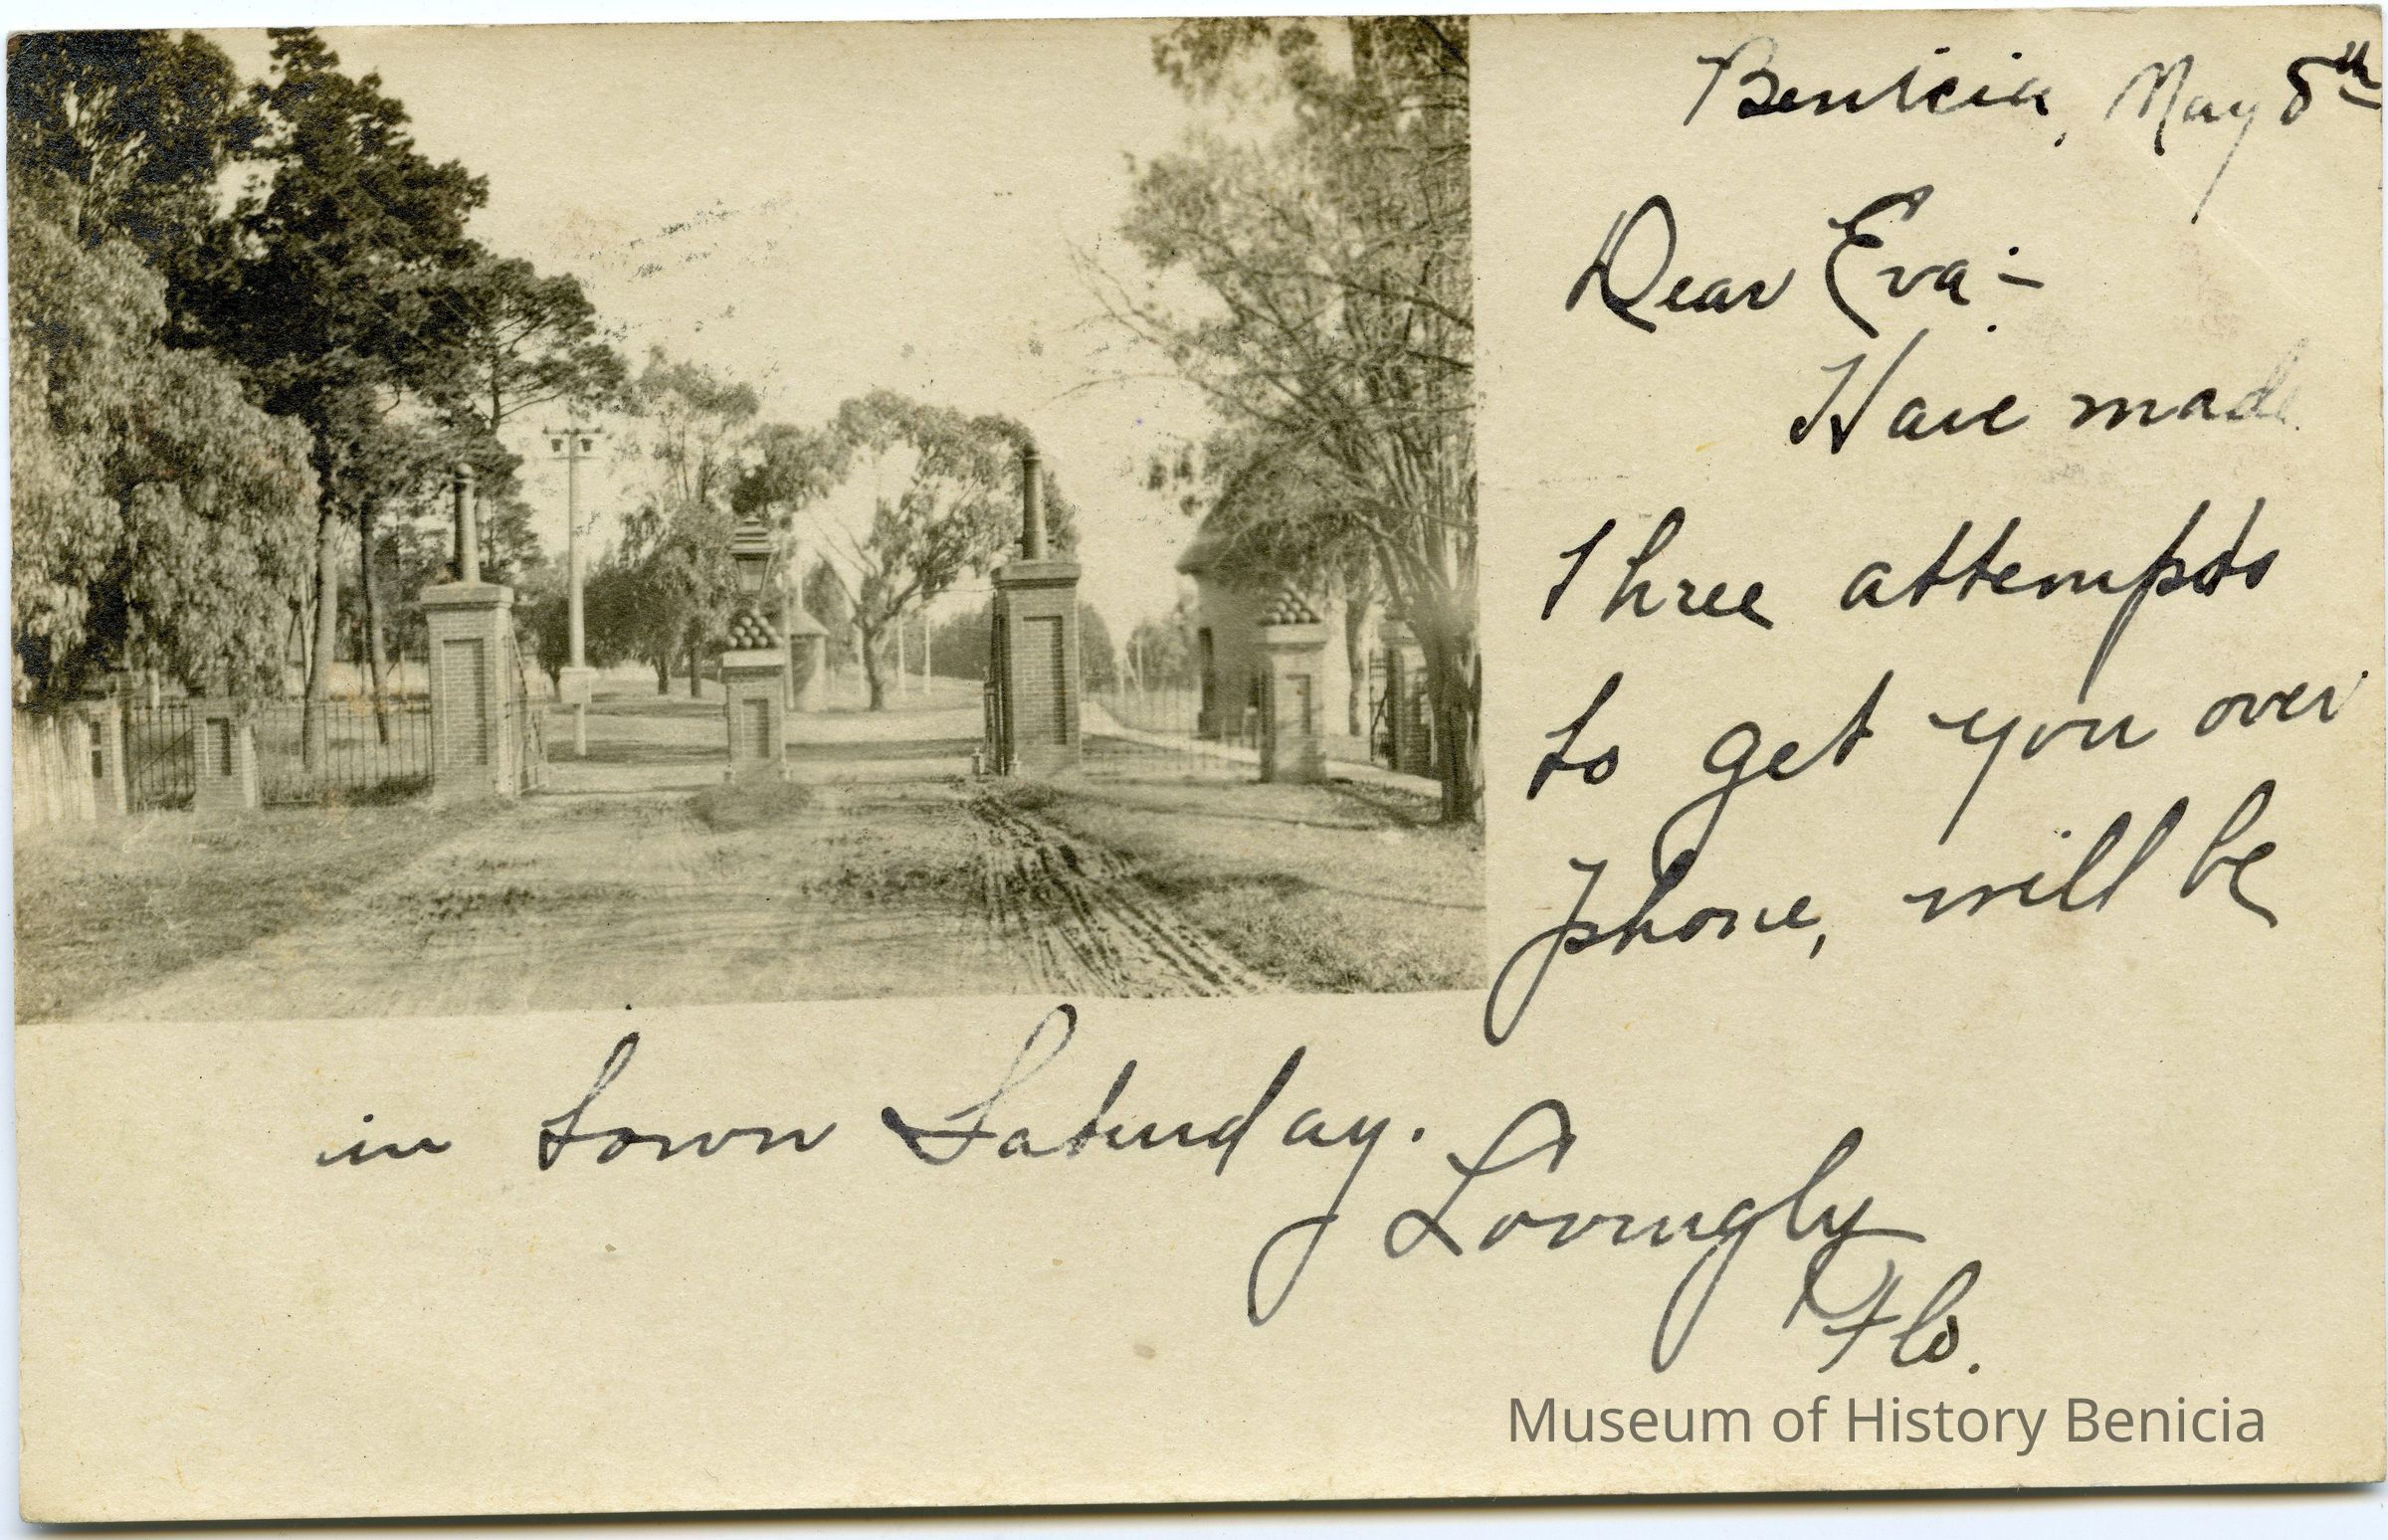 Benicia, May 8th
Dear Eva:-
Have made
three attempts
to get you over
phone, will be
in town Saturday.
Lovingly
Flo.
Museum of History Benicia